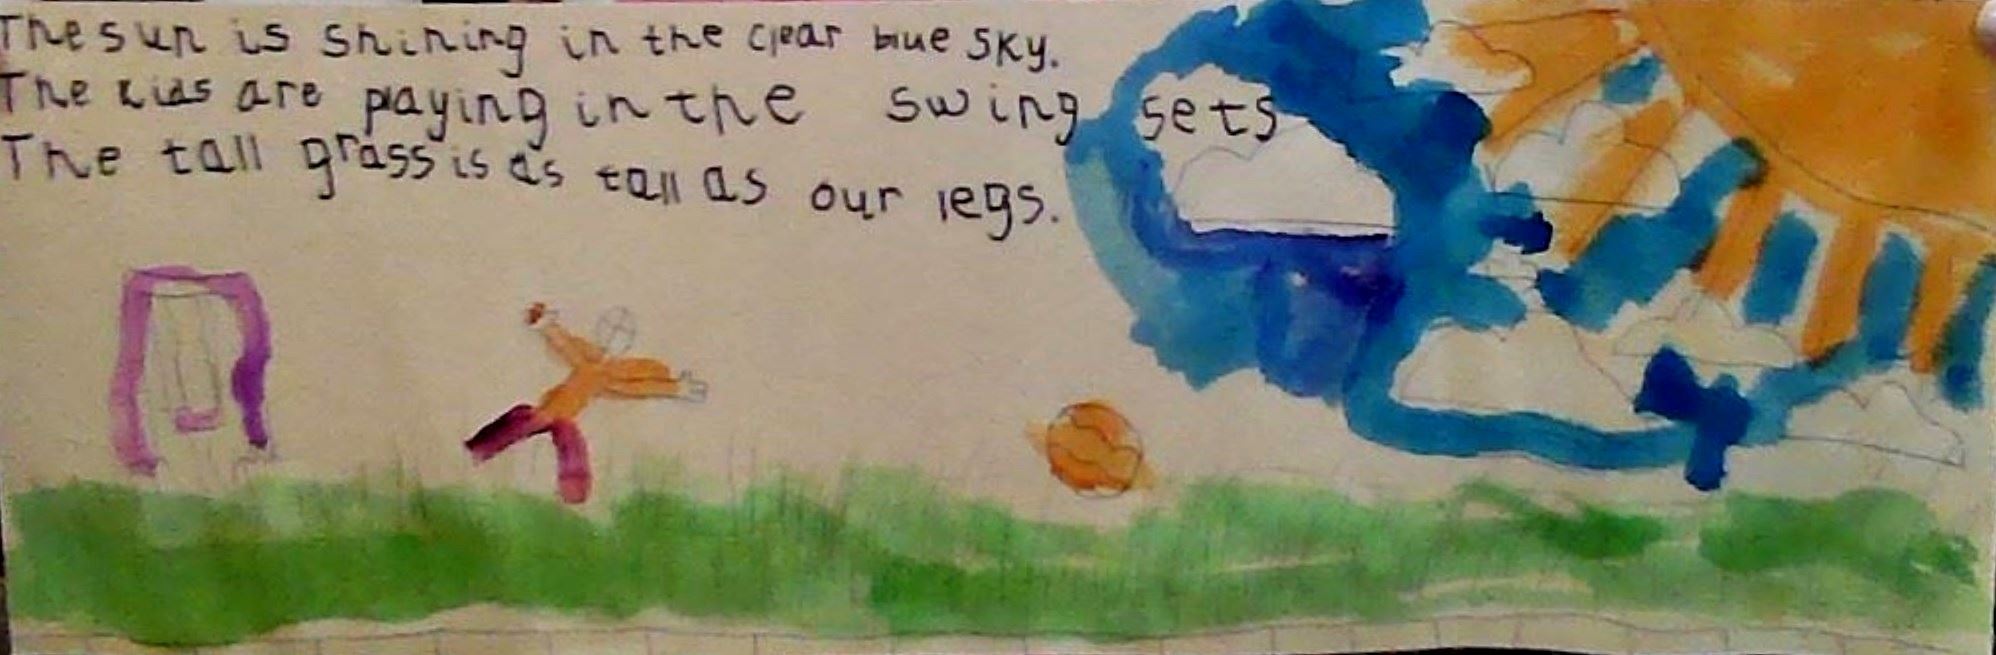 The sun is shining in the clear blue sky.
The kids are playing in the swing sets
The tall grass is as tall as our legs.